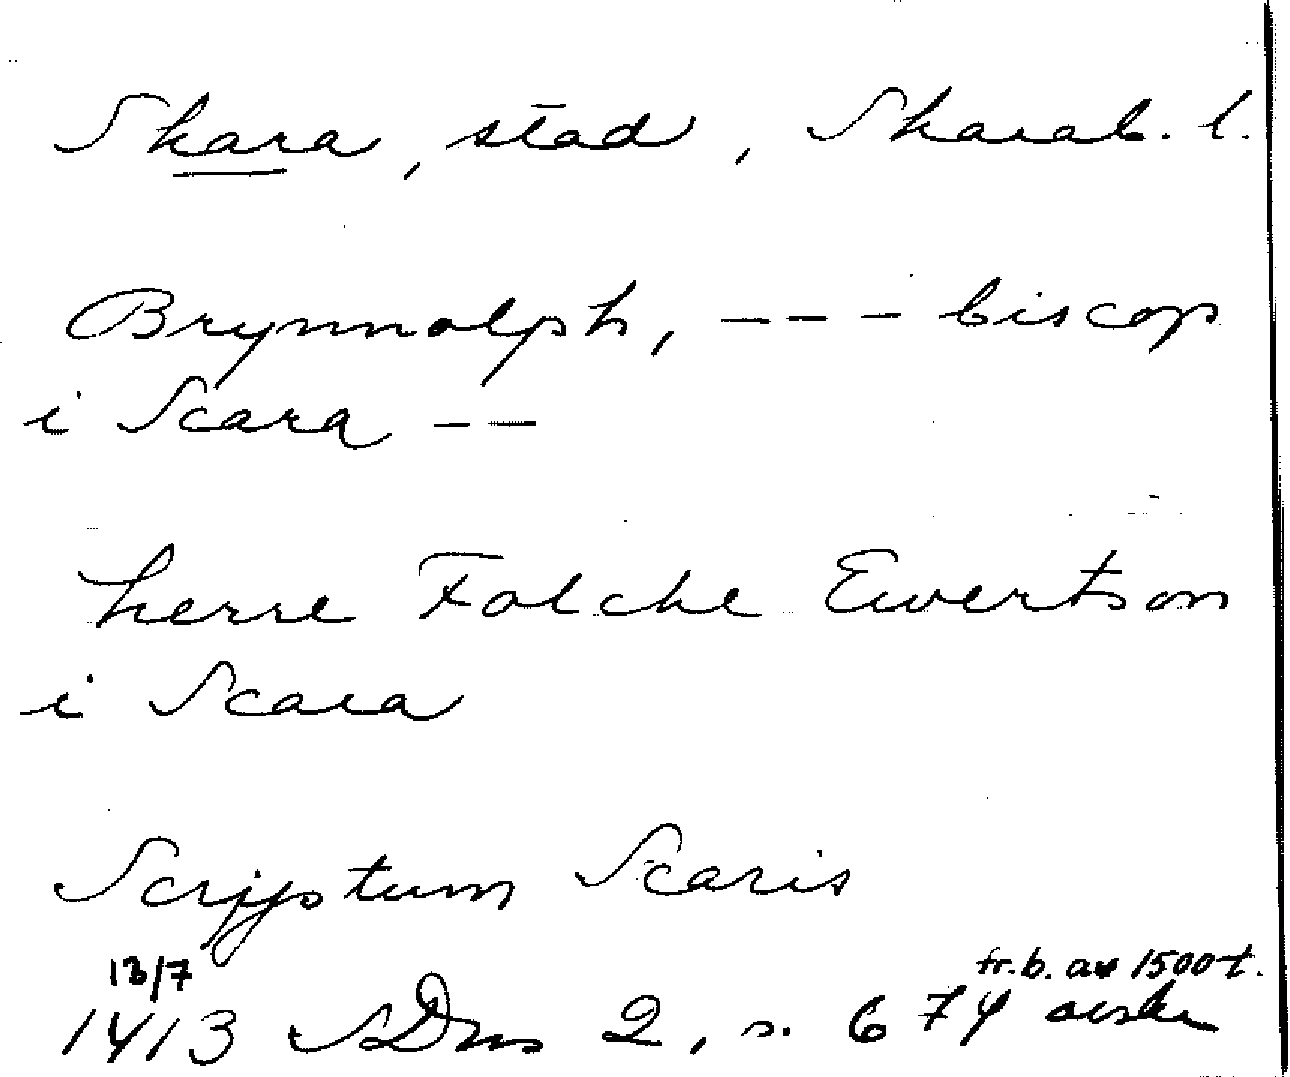 Skara, stad, Skarab. l.
Brynnolph, --- biscop
i Scara --
herre Folche Ewertson
i Scara
Scriptum Scaris
13/7 fr.b. av 1500-t.
1413 SDns 2, s. 674